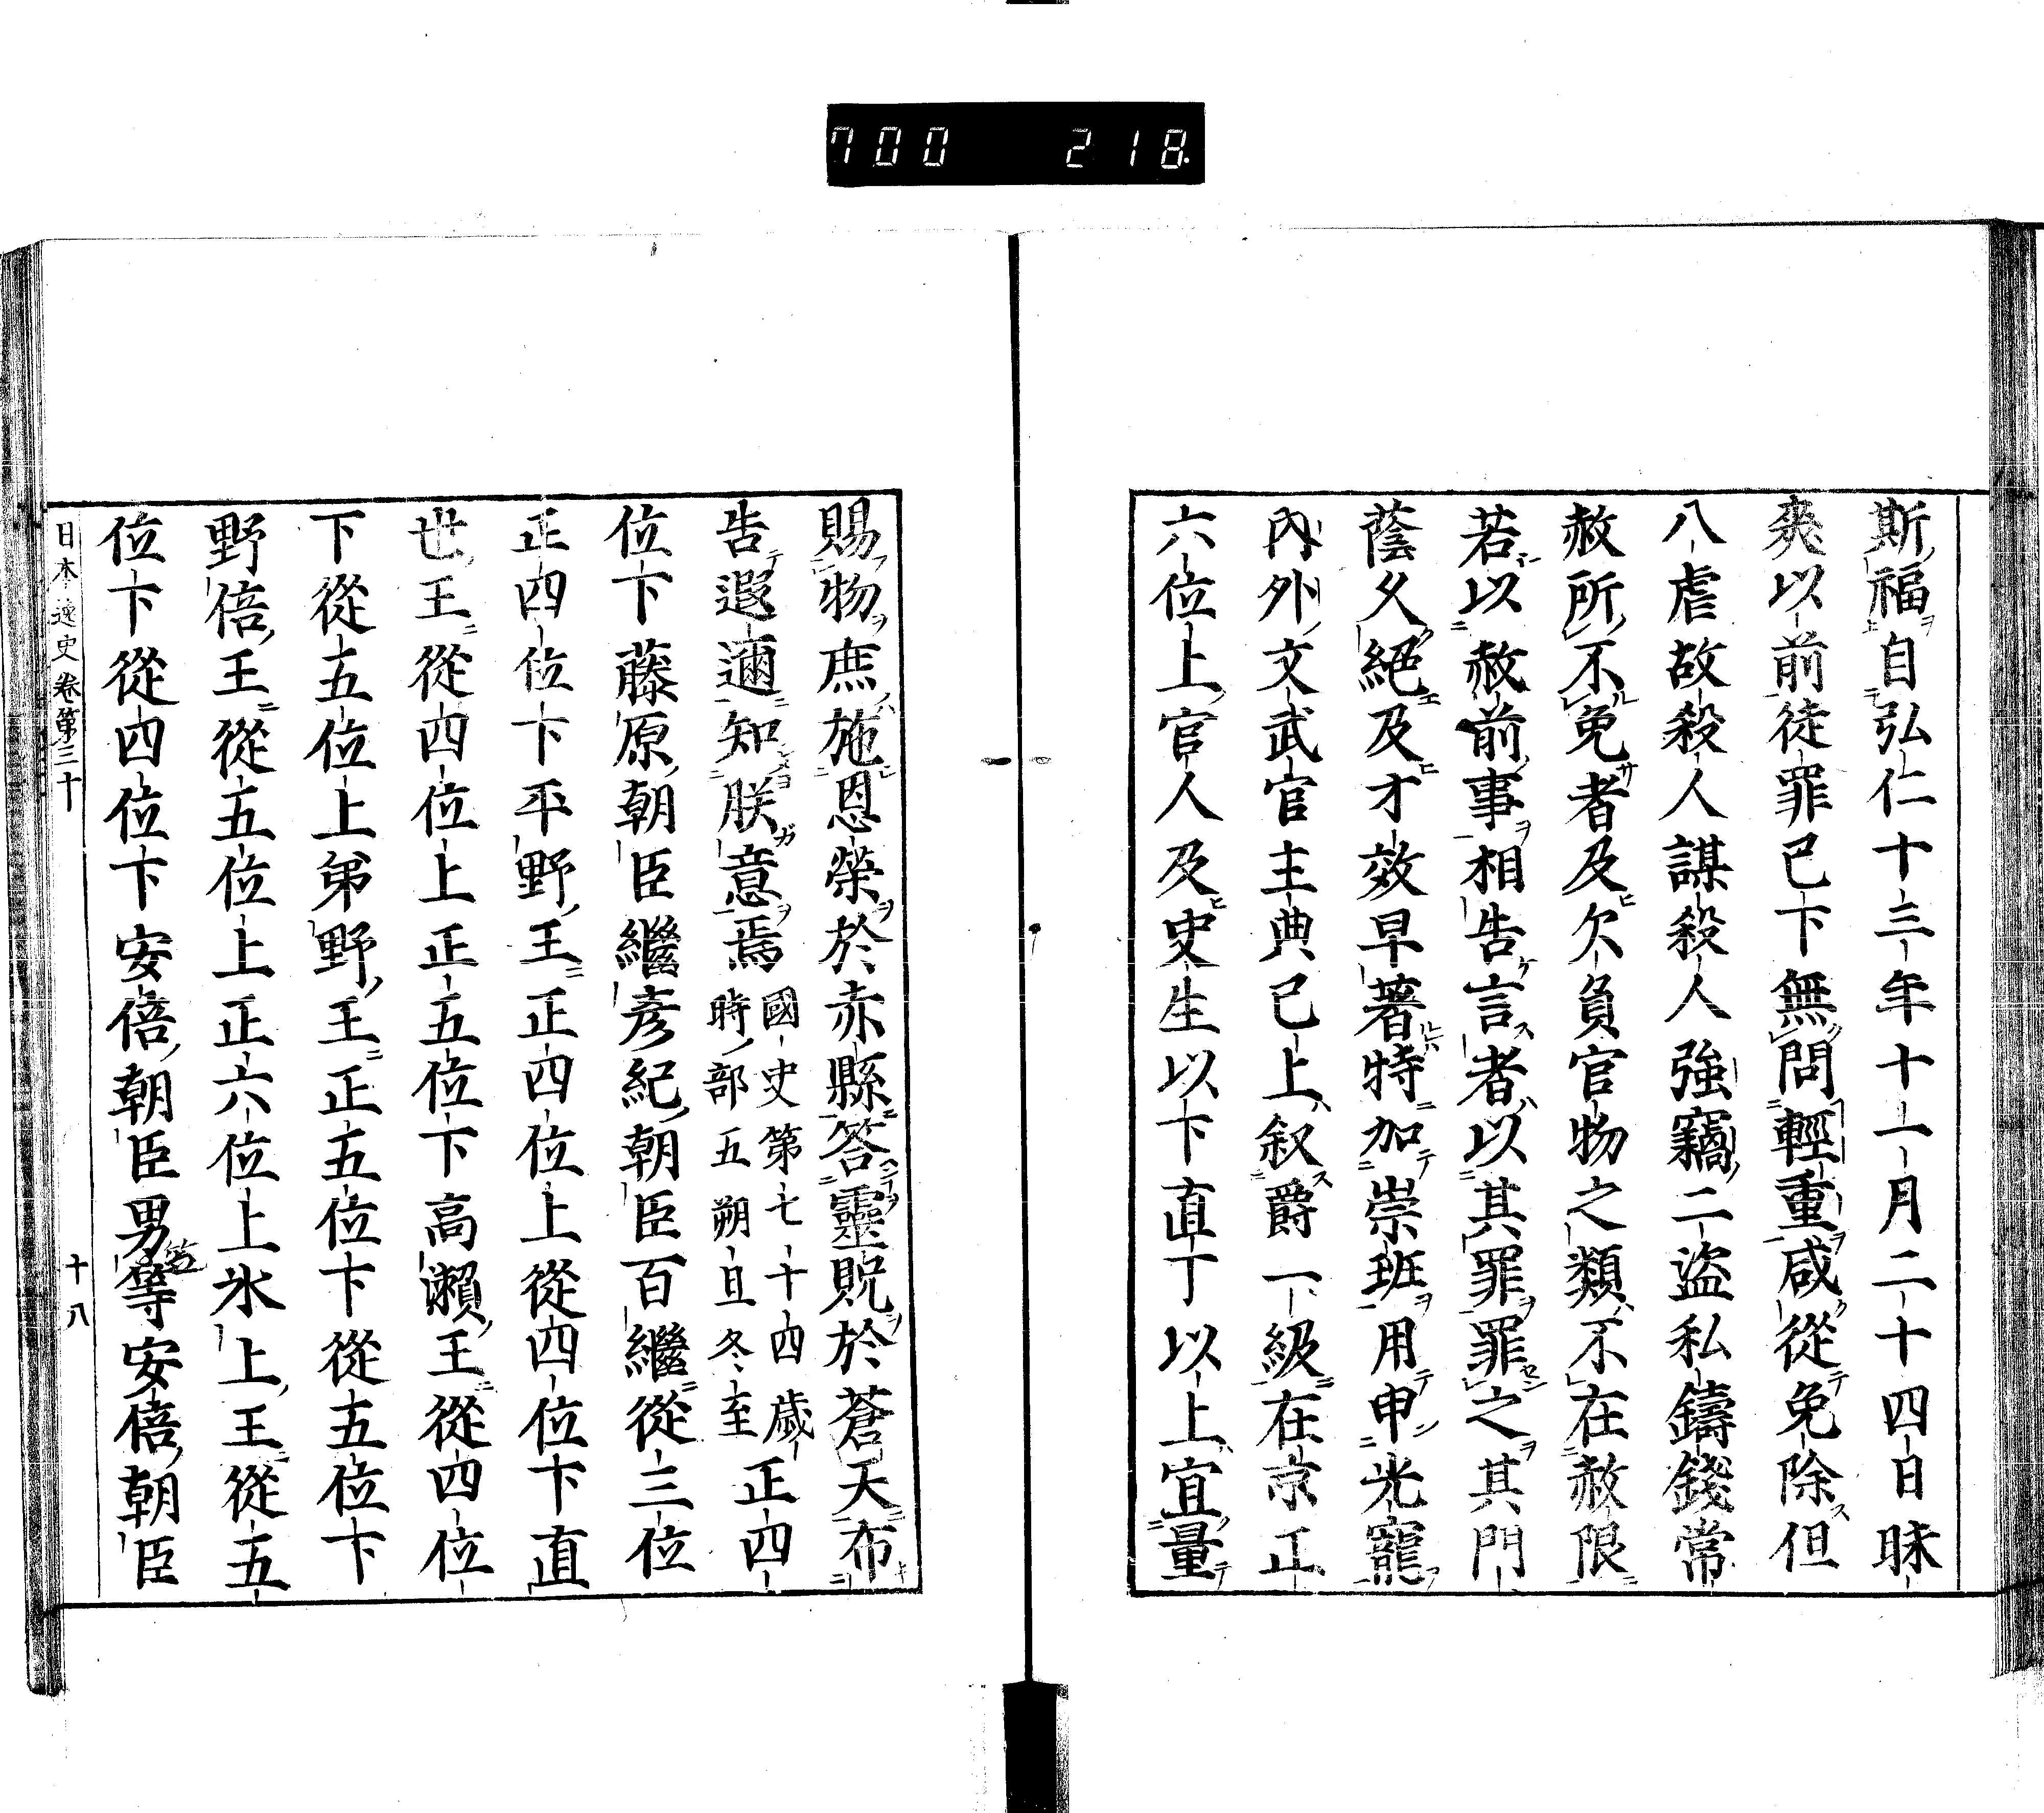 700 218
斯福自弘仁十三年十一月二十四日昧
爽以前徒罪已下無問輕重咸從免除但
八虐故殺人謀殺人強竊二盜私鑄錢常
赦所不免者及欠負官物之類不在赦限
若以赦前事相告言者以其罪罪之其門
蔭久絕及才效早著特加崇班用申光寵
內外文武官主典已上叙爵一級在京正
六位上官人及史生以下直丁以上宜量
賜物庶施恩榮於赤縣答靈貺於蒼天布
告遐邇知朕意焉國史第七十四歲時部五朔旦冬至正四
位下藤原朝臣繼彥紀朝臣百繼從三位
正四位下平野王正四位上從四位下直
世王從四位上正五位下高瀨王從四位
下從五位上弟野王正五位下從五位下
野倍王從五位上正六位上氷上王從五
位下從四位下安倍朝臣男笠等安倍朝臣
日本逸史卷第三十 十八